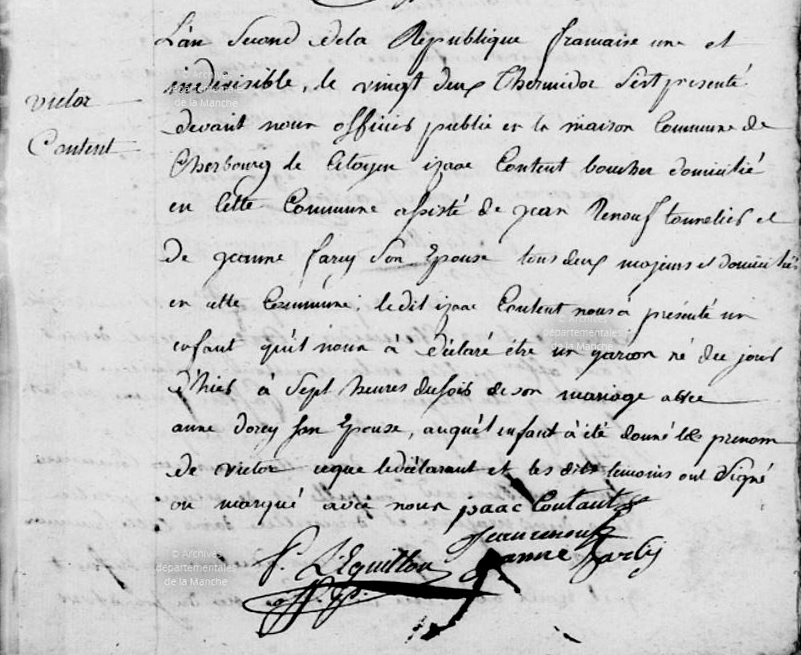 L'an Second de la Republique francaise une et
indivisible, le vingt deux Thermidor s'est presenté
victor
Content
devant nous officier public en la maison Commune de
Cherbourg le Citoyen izaac Content boucher domicilié
en cette Commune assisté de jean Renouf tonnelier et
De jeanne farcy Son Epouse tous deux majeurs et domiciliés
en cette Commune; le dit izaac Content nous a présenté un
enfant qu'il nous à déclaré être un garcon né du jour
d'hier à Sept heures du soir de son mariage avec
anne dorey Son Epouse, auquel enfant à été donné le prenom
de victor ce que le déclarant et les dits temoins ont Signé
ou marqué avec nous isaac Contant
jean renouf
P. L'Eguillon
anne farcy
© Archives
départementales
de la Manche
départementales
de la Manche
© Archives
départementales
de la Manche